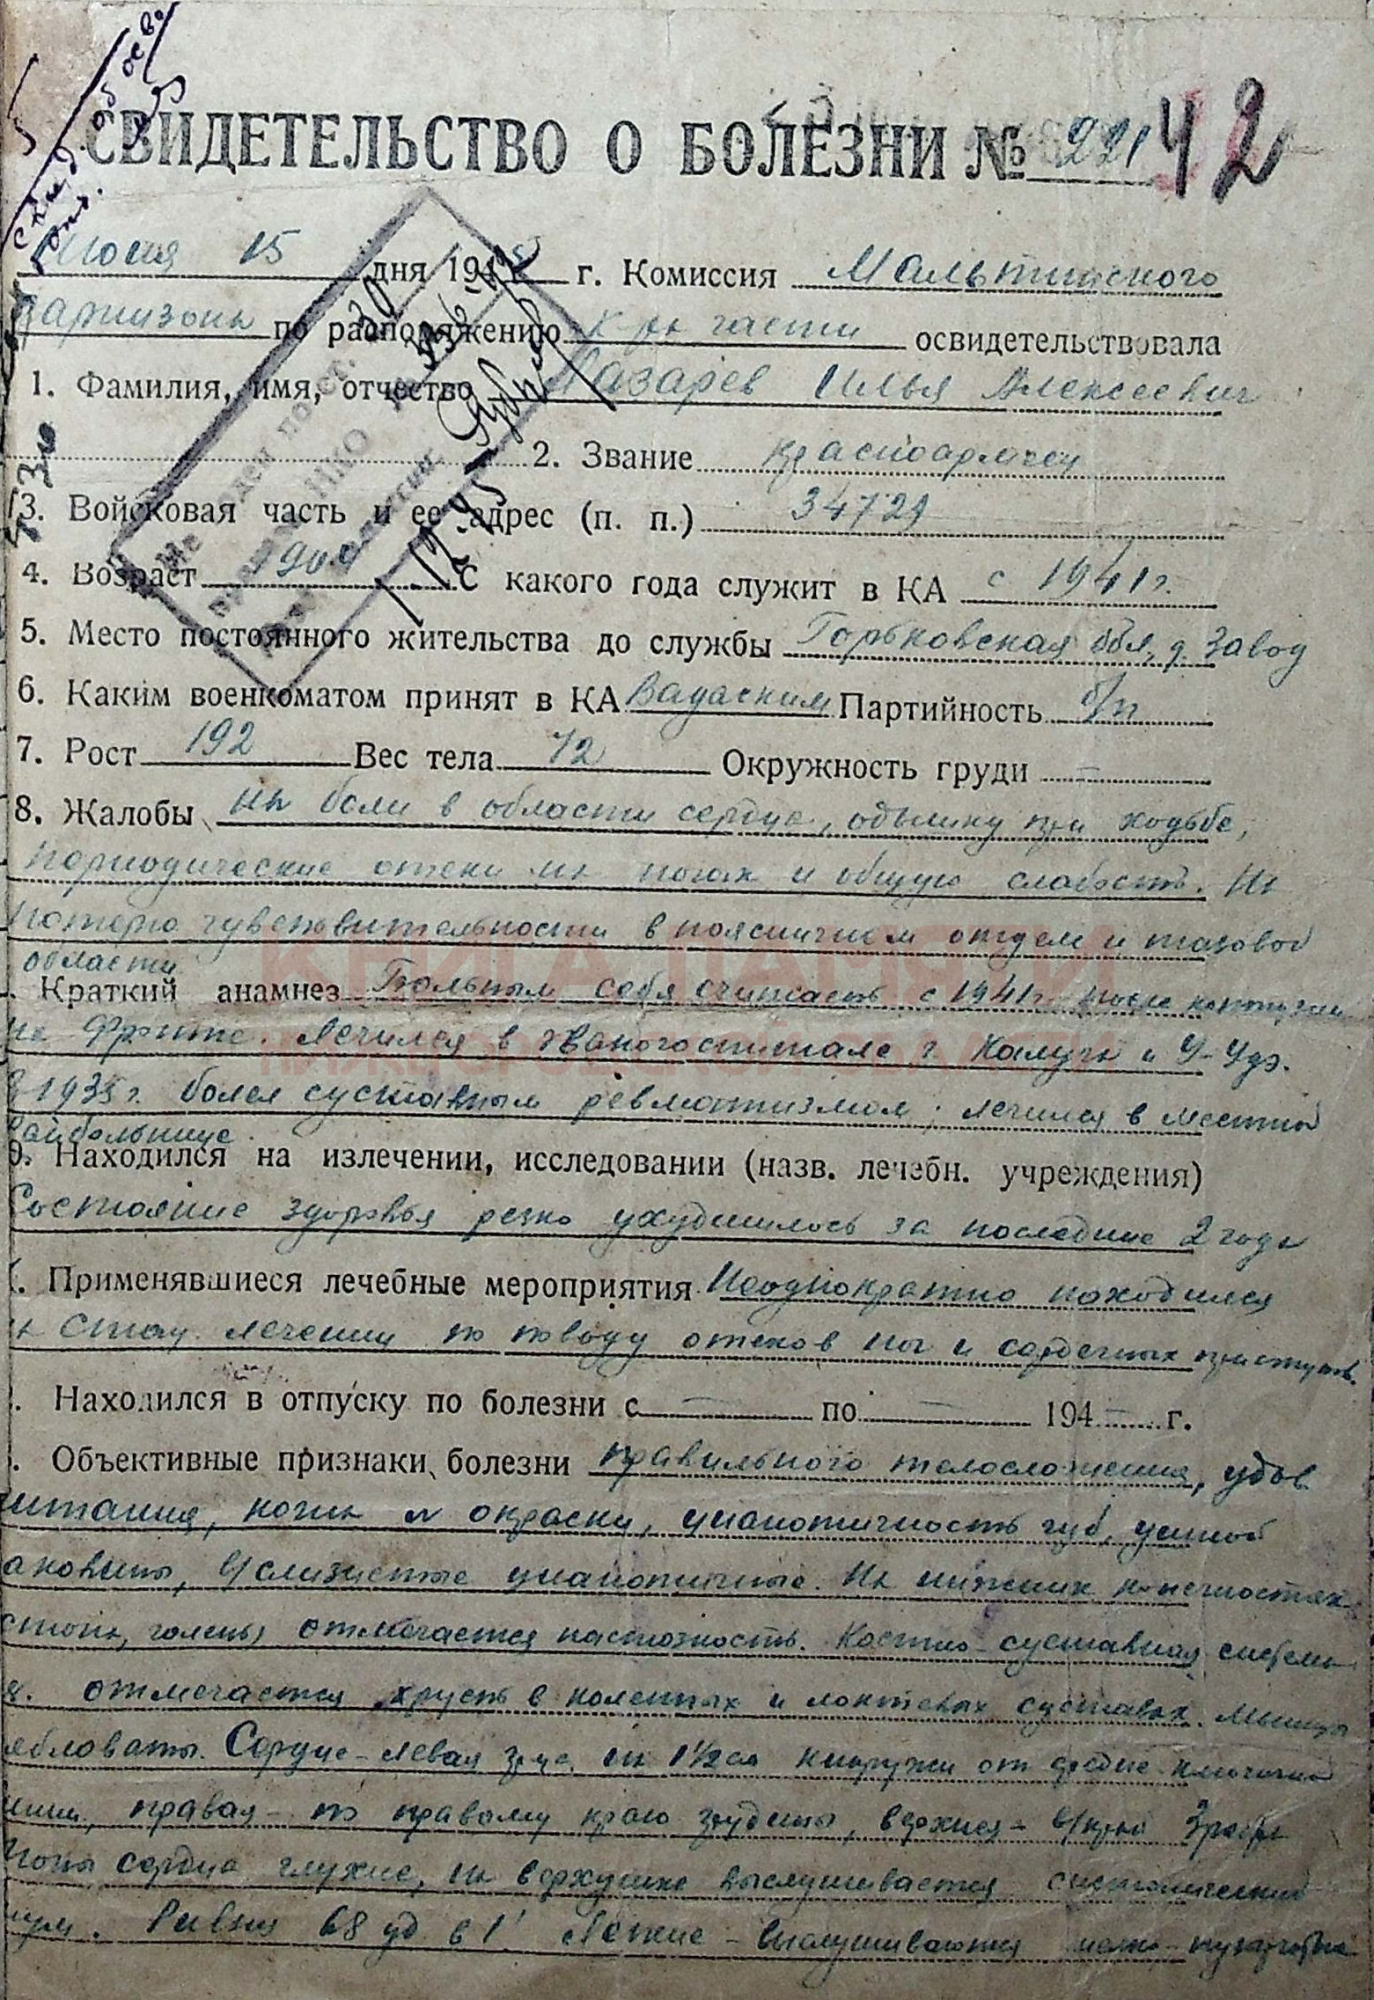 СВИДЕТЕЛЬСТВО О БОЛЕЗНИ № 221 42
Июня 15 дня 1945 г. Комиссия Мальтинского
гарнизона по распоряжению к-ра части освидетельствовала
1. Фамилия, имя, отчество Назарев Илья Алексеевич
2. Звание красноармеец
3. Войсковая часть и ее адрес (п. п.) 34729
4. Возраст С какого года служит в КА с 1941 г.
5. Место постоянного жительства до службы Горьковская обл, д. Завод
6. Каким военкоматом принят в КА Вадским Партийность б/п
7. Рост 192 Вес тела 72 Окружность груди —
8. Жалобы на боли в области сердца, одышку при ходьбе,
периодические отеки на ногах и общую слабость. На
потерю чувствительности в поясничном отделе и тазовой
области
Краткий анамнез Больным себя считает с 1941 г. после контузии
на фронте. Лечился в эвакогоспитале г. Калуга и У-Удэ.
В 1935 г. болел суставным ревматизмом, лечился в местной
райбольнице.
9. Находился на излечении, исследовании (назв. лечебн. учреждения)
Состояние здоровья резко ухудшилось за последние 2 года
Применявшиеся лечебные мероприятия Неоднократно находился
на стац. лечении по поводу отеков ног и сердечных приступов.
Находился в отпуску по болезни с — по — 194 — г.
Объективные признаки болезни правильного телосложения, удов
питания, кожа N окраски, цианотичность губ, ушной
раковины, в/слизистые цианотичные. На нижних конечностях
(стопа, голень) отмечается пастозность. Костно-суставная система
отмечается хруст в коленных и локтевых суставах. Мышцы
дрябловаты. Сердце - левая гр-ца на 1½ см кнаружи от средне-ключичной
линии, правая - по правому краю грудины, верхняя - в/край 3 ребра
Тоны сердца глухие, на верхушке выслушивается систолический
шум. Пульс 68 уд. в 1'. Легкие - выслушиваются мелко-пузырчатые
КНИГА ПАМЯТИ
НИЖЕГОРОДСКОЙ ОБЛАСТИ